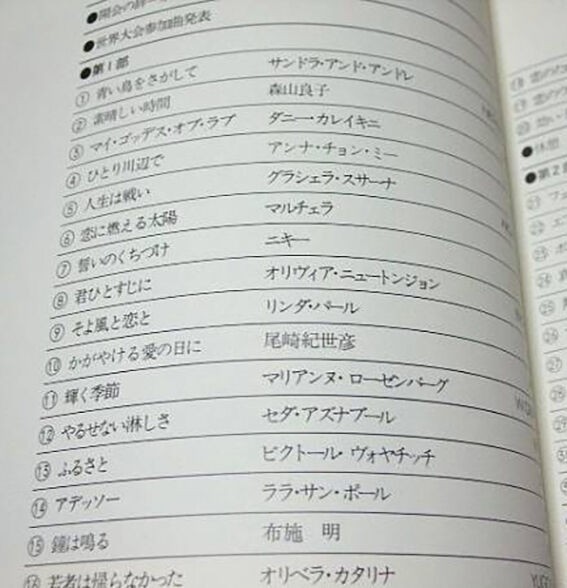 ●開会の辞
●世界大会参加曲発表
●第1部
① 青い鳥をさがして サンドラ・アンド・アンドレ
② 素晴しい時間 森山良子
③ マイ・ゴッデス・オブ・ラブ ダニー・カレイキニ
④ ひとり川辺で アンナ・チョン・ミー
⑤ 人生は戦い グラシェラ・スサーナ
⑥ 恋に燃える太陽 マルチェラ
⑦ 誓いのくちづけ ニキー
⑧ 君ひとすじに オリヴィア・ニュートンジョン
⑨ そよ風と恋と リンダ・パール
⑩ かがやける愛の日に 尾崎紀世彦
⑪ 輝く季節 マリアンヌ・ローゼンバーグ
⑫ やるせない淋しさ セダ・アズナブール
⑬ ふるさと ビクトール・ヴォヤチッチ
⑭ アデッソー ララ・サン・ポール
⑮ 鐘は鳴る 布施 明
⑯ 若者は帰らなかった オリベラ・カタリナ
●休憩
●第2